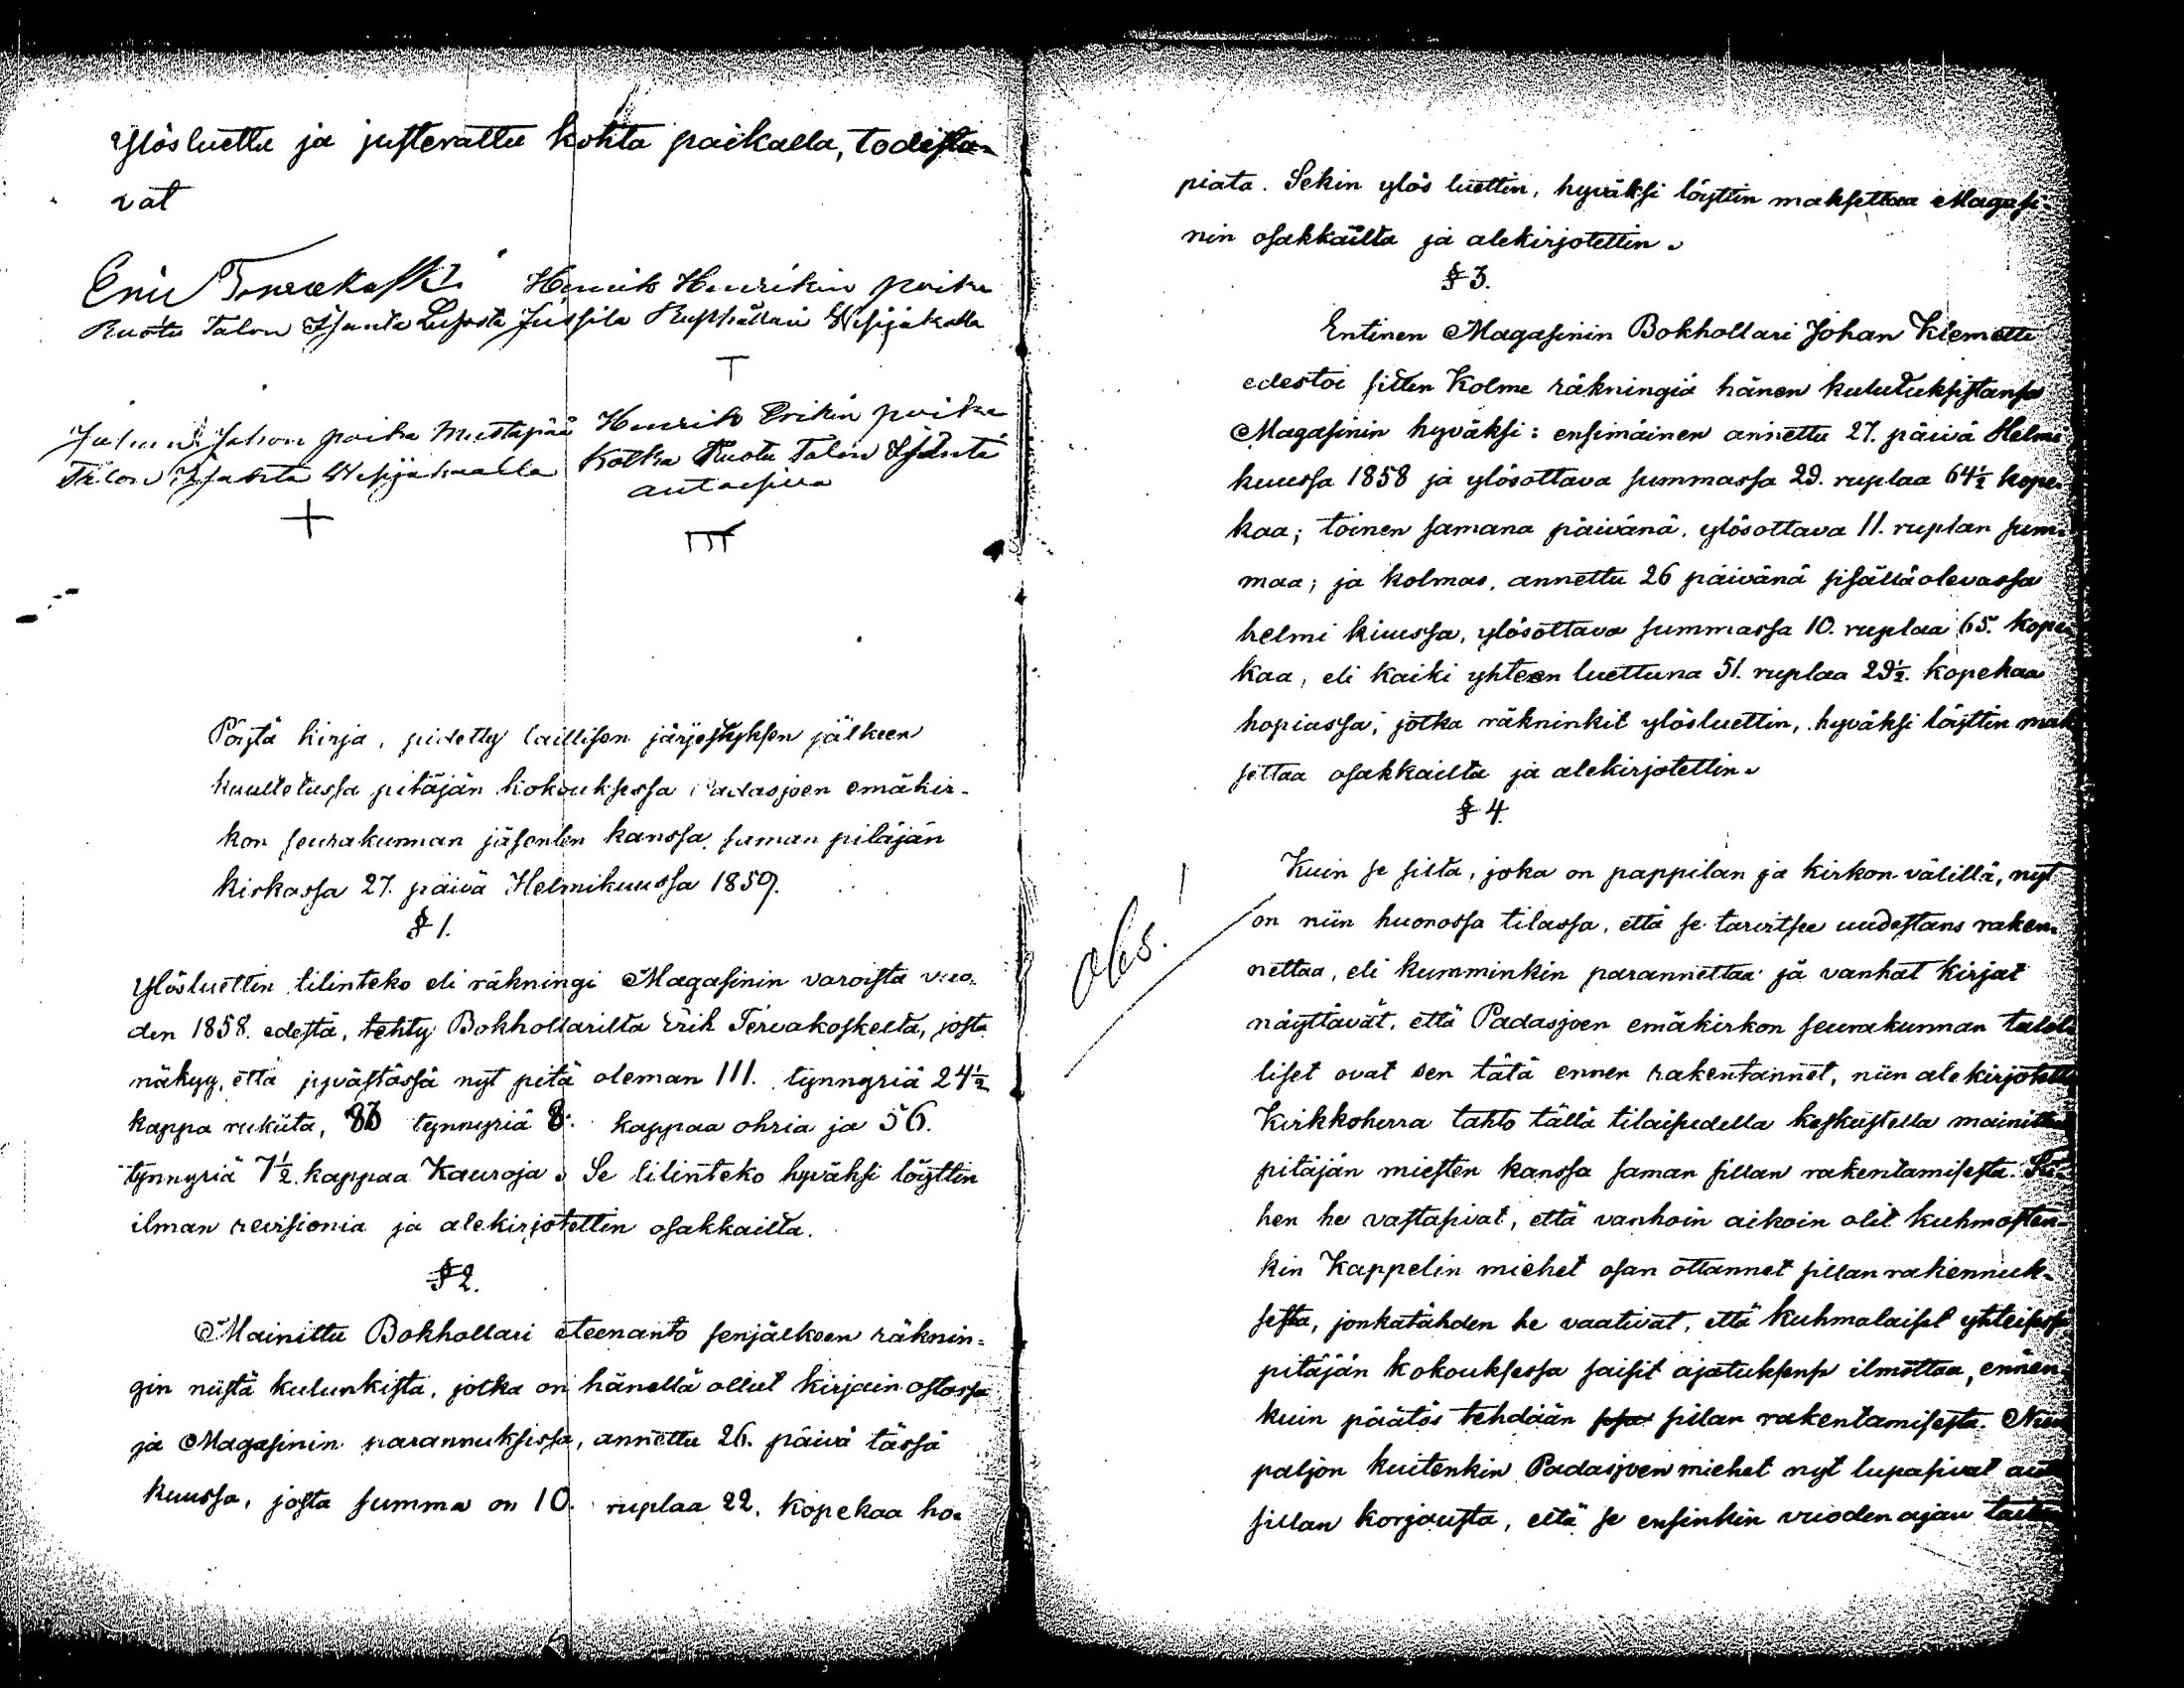 Ylösluettu ja justerattu kohta paikalla, todista-
vat
Eric Tervakoski Henrik Henrikin poika
Ruotu Talon Isäntä Jussila
Johan Johan poika Mustapää Henrik Erikin poika
Talon Isäntä Kotka Ruotu Talon Isäntä
Pöytä kirja, pidetty laillisen järjestyksen jälkeen
kuulletussa pitäjän kokouksessa Padasjoen emäkir-
kon seurakunnan jäsenten kanssa saman pitäjän
kirkossa 27. päivä Helmikuussa 1859.
§ 1.
Ylösluettin tilinteko eli räkningi Magasinin varoista vuo-
den 1858. edestä, tehty Bokhollarilta Erik Tervakoskelta, josta
näkyy, että jyvästössä nyt pitä oleman 111. tynnyriä 24½
kappa rukiita, 83 tynnyriä 8. kappaa ohria ja 56.
tynnyriä 7½. kappaa Kauroja. Se tilinteko hyväksi löyttin
ilman revisionia ja alekirjotettin osakkailta.
§ 2.
Mainittu Bokhollari eteenanto senjälkeen räknin-
gin niistä kulunkista, jotka on hänellä ollut kirjain ostossa
ja Magasinin parannuksissa, annettu 26. päivä tässä
kuussa, josta summa on 10. ruplaa 22. kopekaa ho-
piata. Sekin ylös luettin, hyväksi löyttin maksettaa Magasi-
nin osakkailta ja alekirjotettin.
§ 3.
Entinen Magasinin Bokhollari Johan Klemetti
edestoi sitten Kolme räkningiä hänen kulutuksistansa
Magasinin hyväksi: ensimäinen annettu 27. päivä Helmi
kuussa 1858 ja ylösottava summassa 29. ruplaa 64½ kope-
kaa; toinen samana päivänä, ylösottava 11. ruplan sum-
maa; ja kolmas, annettu 26 päivänä sisälläolevassa
helmi kuussa, ylösottava summassa 10. ruplaa 65. kope-
kaa, eli kaiki yhteen luettuna 51. ruplaa 29½. kopekaa
hopiassa, jotka räkninkit ylösluettin, hyväksi löyttin mak
settaa osakkailta ja alekirjotettin.
§ 4.
obs!
Kuin se silta, joka on pappilan ja kirkon välillä, nyt
on niin huonossa tilassa, että se tarvitsee uudestans raken-
nettaa, eli kumminkin parannettaa ja vanhat kirjat
näyttävät, että Padasjoen emäkirkon seurakunnan talol-
liset ovat sen tätä ennen rakentannet, niin alekirjotettu
Kirkkoherra tahto tällä tilaisudella keskustella mainittun
pitäjän miesten kanssa saman sillan rakentamisesta. Sii-
hen he vastasivat, että vanhoin aikoin olit kuhmosten-
kin Kappelin miehet osan ottannet sillan rakennuk-
sesta, jonkatähden he vaativat, että kuhmalaiset yhteisessä
pitäjän kokouksessa saisit ajatuksensa ilmottaa, ennen-
kuin päätös tehdään sillan rakentamisesta. Niin
paljon kuitenkin Padasjoen miehet nyt lupasivat
sillan korjausta, että se ensinkin vuoden ajan